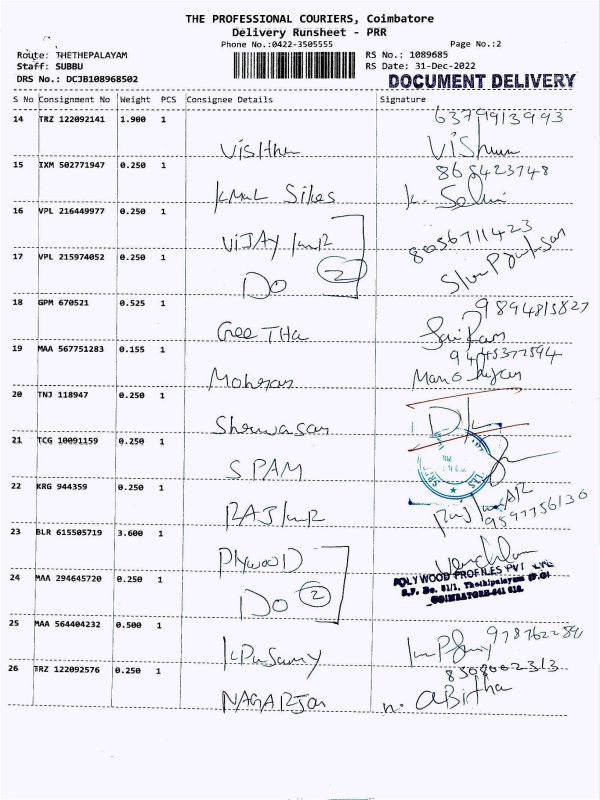 THE PROFESSIONAL COURIERS, Coimbatore
Delivery Runsheet - PRR
Phone No.:0422-3505555 Page No.:2
Route: THETHEPALAYAM RS No.: 1089685
Staff: SUBBU RS Date: 31-Dec-2022
DRS No.: DCJB108968502 DOCUMENT DELIVERY
S No Consignment No Weight PCS Consignee Details Signature
14 TRZ 122092141 1.900 1 6379913993
15 IXM 502771947 0.250 1 868423748
Sikes K.
16 VPL 216449977 0.250 1
VIJAY 8056711423
17 VPL 215974052 0.250 1
Do 2
18 GPM 670521 0.525 1 9894815827
GeeTHa Sai Ram
19 MAA 567751283 0.155 1 9445377594
20 TNJ 118947 0.250 1
21 TCG 10091159 0.250 1
SPAM
22 KRG 944359 0.250 1
9597756136
23 BLR 615505719 3.600 1
Plywood
POLYWOOD PROFILES PVT LTD
24 MAA 294645720 0.250 1
S.F. No. 81/1, Thethipalayam
Do 2 COIMBATORE-641 010.
25 MAA 564404232 0.500 1
26 TRZ 122092576 0.250 1 8508002313
n. aBitha